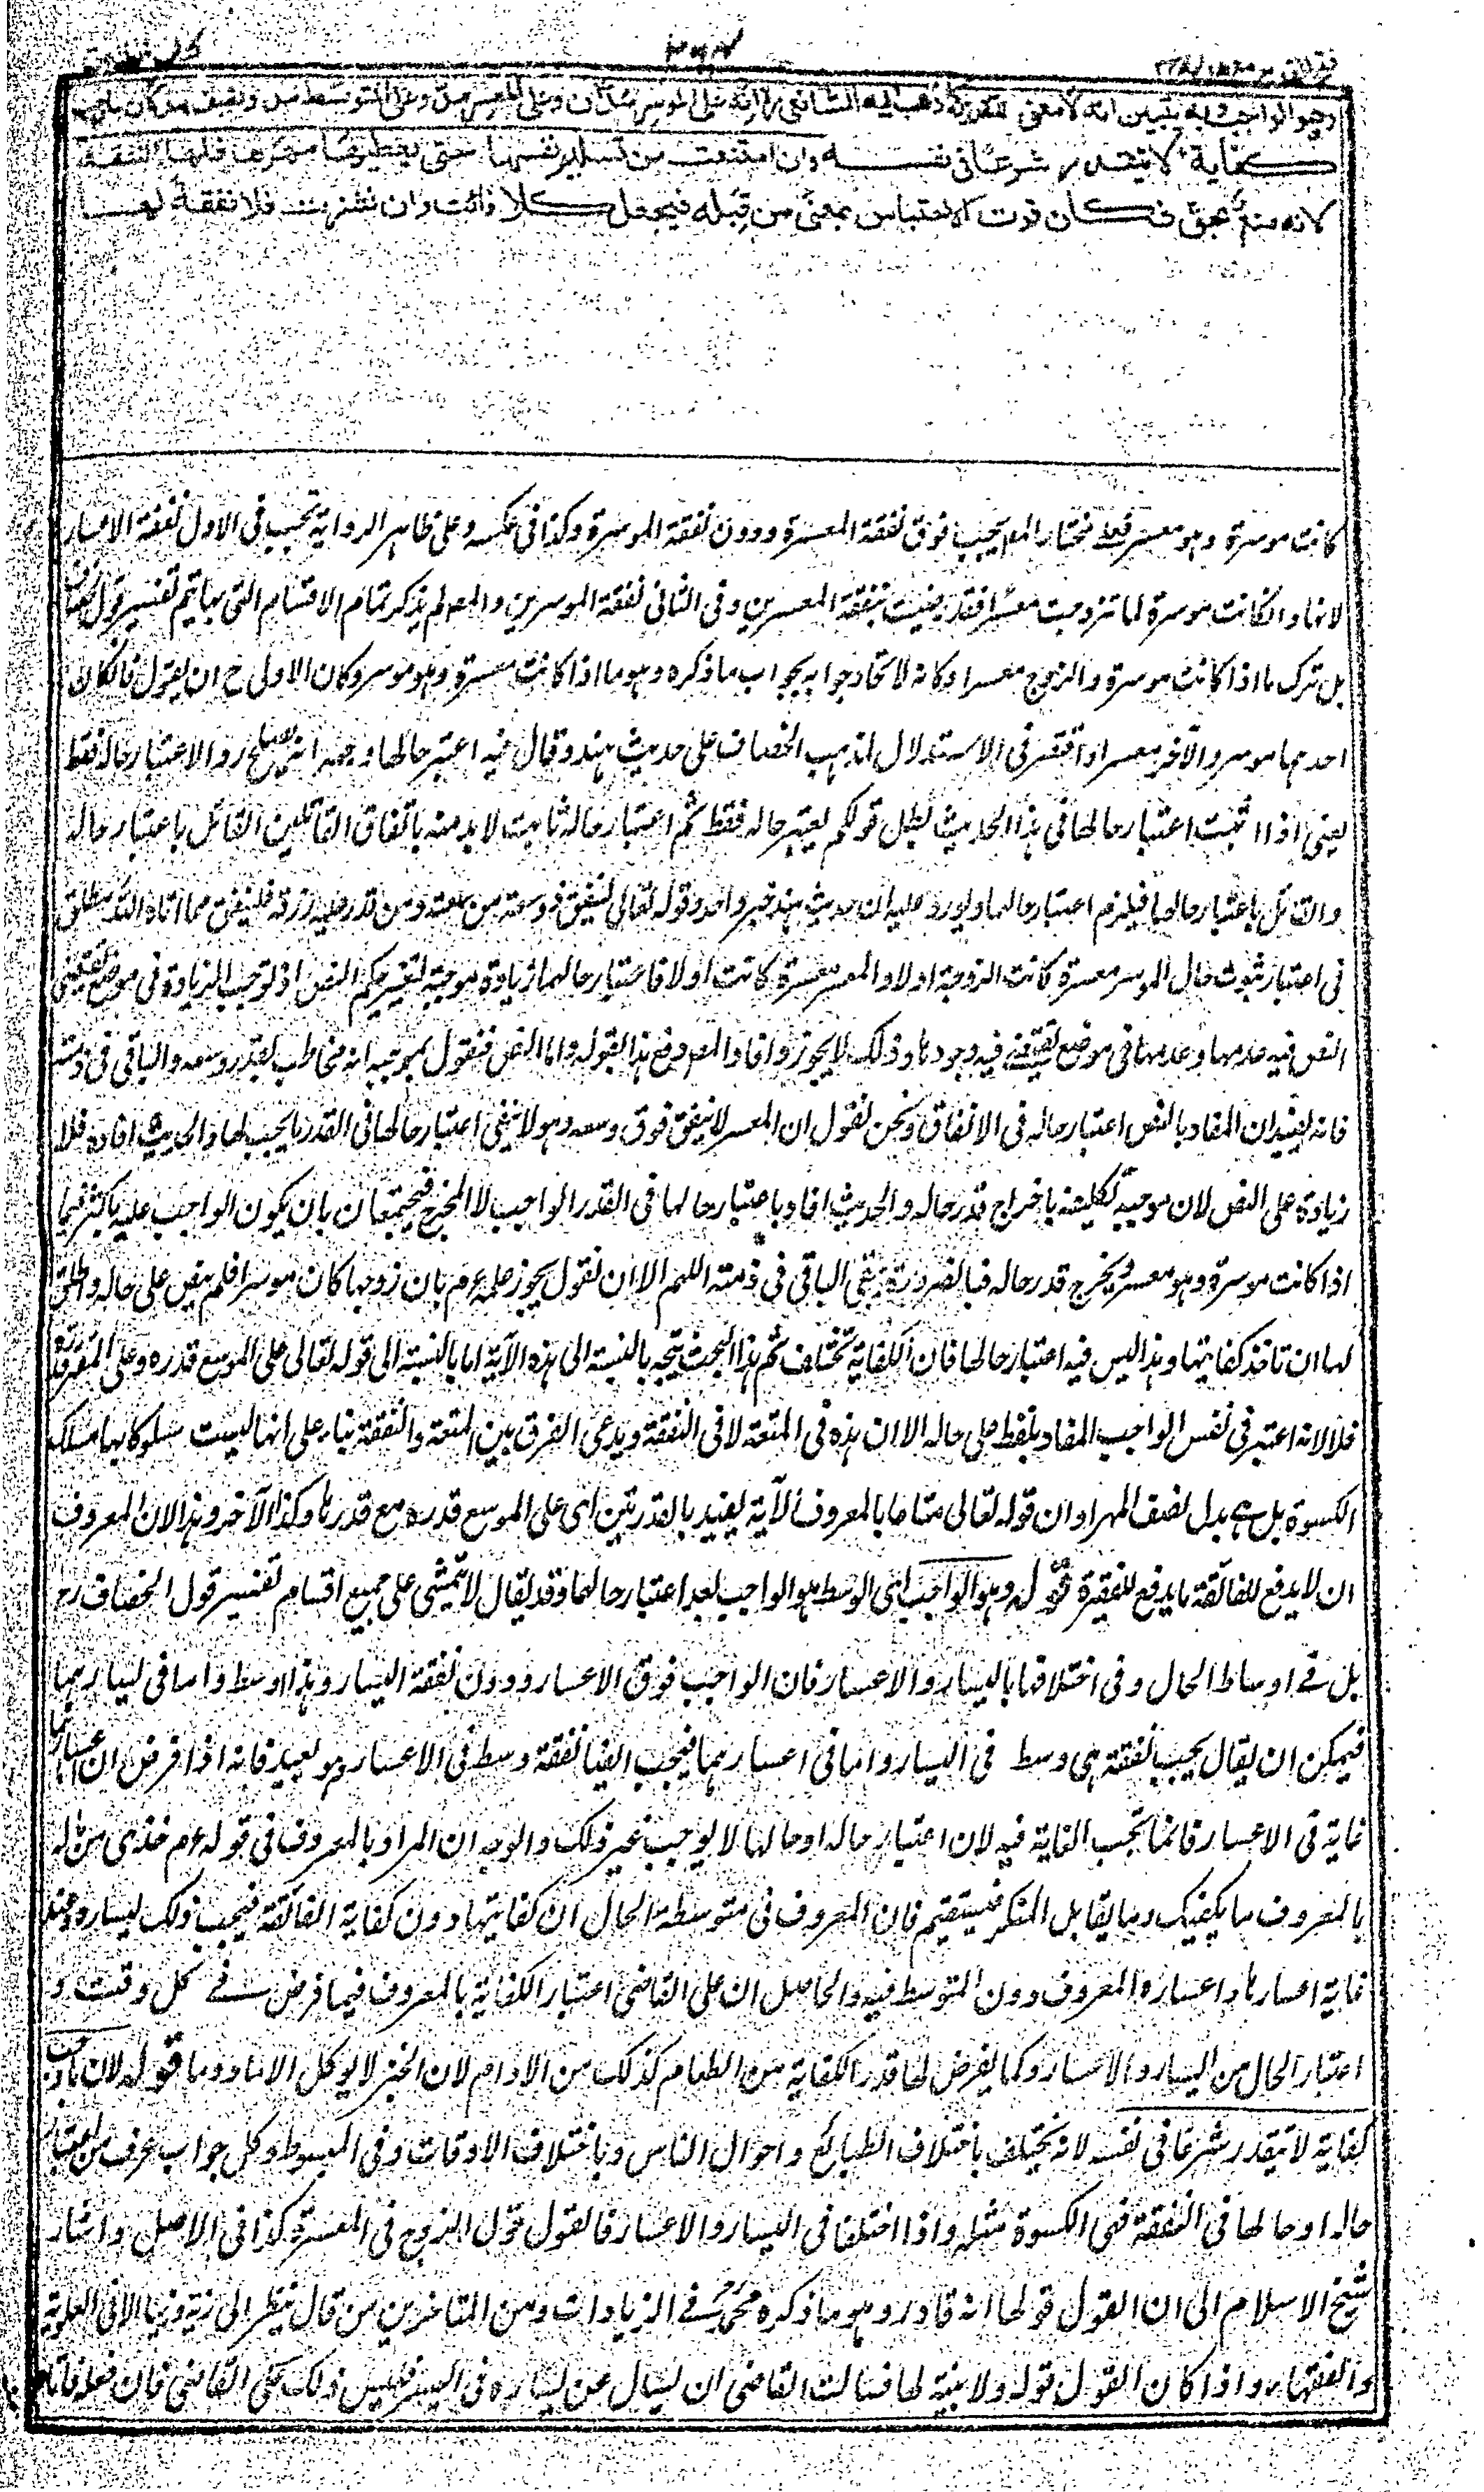 وهو الواجب وبه يتبين انه لا معنى للتقدير كما ذهب اليه الشافعي رح انه على الموسر مدان وعلى المعسر مد وعلى المتوسط مد ونصف مد لان ما وجب
كفاية لا يتقدر شرعا في نفسه وان امتنعت من تسليم نفسها حتى يعطيها مهرها فلها النفقة
لانه منع بحق فكان فوت الاحتباس بمعنى من قبله فيجعل كلا فائت وان نشزت فلا نفقة لها
كانت موسرة وهو معسر فعلى مختار المص يجب فوق نفقة المعسرة ودون نفقة الموسرة وكذا في عكسه وعلى ظاهر الرواية تجب في الاول نفقة الاعسار
لانها وان كانت موسرة لما تزوجت معسرا فقد رضيت بنفقة المعسرين وفى الثاني نفقة الموسرين والمص لم يذكر تمام الاقسام التى بها يتم تفسير قول الخصاف
بل ترك ما اذا كانت موسرة والزوج معسرا وكانه لاتحاد جوابه بجواب ما ذكره وهو ما اذا كانت معسرة وهو موسر وكان الاولى ح ان يقول فان كان
احدهما موسر والآخر معسرا واقتصر فى الاستدلال لمذهب الخصاف على حديث هند وقال فيه اعتبر حالها وجهه انه يصلح ردا لاعتبار حاله فقط
يعنى اذا اثبت اعتبار حالها فى هذا الحديث بطل قولكم يعتبر حاله فقط ثم اعتبار حاله ثابت لا بد منه باتفاق القائلين القائل باعتبار حاله
والقائل باعتبار حالهما فيلزم اعتبار حالهما ويورد عليه ان حديث هند خبر واحد وقوله تعالى لينفق ذو سعة من سعته ومن قدر عليه رزقه فلينفق مما اتاه الله مطلق
فى اعتبار ثبوت حال الموسر معسرة كانت الزوجة اولا والمعسر معسرة كانت اولا فاعتبار حالهما زيادة موجبة لتغيير حكم النص اذ توجب الزيادة فى موضع يقتضى
النص فيه عدمها وعدمها فى موضع يقتضى فيه وجودها وذلك لا يجوز وافاد المص دفع هذا بقوله واما النص فنقول بموجبه انه مخاطب بقدر وسعه والباقى فى ذمته
فانه يفيد ان المفاد بالنص اعتبار حاله فى الانفاق ونحن نقول ان المعسر لا ينفق فوق وسعه وهو لا ينفى اعتبار حالها فى القدر ما يجب لها والحديث افاده فلا
زيادة على النص لان موجبه تكليفه باخراج قدر حاله والحديث افاد باعتبار حالها فى القدر الواجب لا المخرج فيجتمعان بان يكون الواجب عليه باكثر فيما
اذا كانت موسرة وهو معسر ويخرج قدر حاله فبالضرورة يبقى الباقى فى ذمته اللهم الا ان نقول يجوز علمه ءم بان زوجها كان موسرا فلم ينص على حاله واطلق
لها ان تاخذ كفايتها وهذا ليس فيه اعتبار حالها فان الكفاية تختلف ثم هذا البحث يتجه بالنسبة الى هذه الآية اما بالنسبة الى قوله تعالى على الموسع قدره وعلى المقتر قدره
فلا لانه اعتبر فى نفس الواجب المفاد بلفظ على حاله الا ان هذه فى المتعة لا فى النفقة ويدعى الفرق بين المتعة والنفقة بناء على انها ليست مسلوكا بها مسلك
الكسوة بل هى بدل نصف المهر او ان قوله تعالى متاعا بالمعروف الآية يفيد بالقدرتين اى على الموسع قدره مع قدرها وكذا الآخر وهذا لان المعروف
ان لا يدفع للفائقة ما يدفع للفقيرة قوله وهو الواجب اى الوسط هو الواجب بعد اعتبار حالهما وقد يقال لا يتمشى على جميع اقسام تفسير قول الخصاف رح
بل فى اوساط الحال وفى اختلافها باليسار والاعسار فان الواجب فوق الاعسار ودون نفقة اليسار وهذا اوسط واما فى يسارهما
فيمكن ان يقال يجب نفقة هى وسط فى اليسار واما فى اعسارهما فيجب ايضا نفقة وسط فى الاعسار وهو بعيد فانه اذا فرض ان اعسارهما
غاية فى الاعسار فانما تجب الغاية فيه لان اعتبار حاله او حالها لا يوجب غير ذلك والوجه ان المراد بالمعروف فى قوله ءم خذى من ماله
بالمعروف ما يكفيك وما يقابل المنكر فيستقيم فان المعروف فى متوسطة الحال ان كفايتها دون كفاية الفائقة فيجب ذلك ليساره وعند
غاية اعسارها واعساره المعروف دون المتوسط فيه والحاصل ان على القاضى اعتبار الكفاية بالمعروف فيما فرض فى كل وقت و
اعتبار الحال من اليسار والاعسار وكما يفرض لها قدر الكفاية من الطعام كذلك من الادام لان الخبز لا يوكل الا مادوما قوله لان ما وجب
كفاية لا يتقدر شرعا فى نفسه لانه يختلف باختلاف الطبائع واحوال الناس وباختلاف الاوقات وفى المبسوط وكل جواب عرف من اعتبار
حاله او حالها فى النفقة ففى الكسوة مثله واذا اختلفا فى اليسار والاعسار فالقول قول الزوج فى العسرة كذا فى الاصل واشار
شيخ الاسلام الى ان القول قولها انه قادر وهو ما ذكره محمد رح فى الزيادات ومن المتاخرين من قال ينظر الى زيه وزيها الا فى العلوية
والفقهاء واذا كان القول قوله ولا بينة لها فسالت القاضى ان يسال عن يساره فى السر فليس ذلك على القاضى فان فعله فاتاه